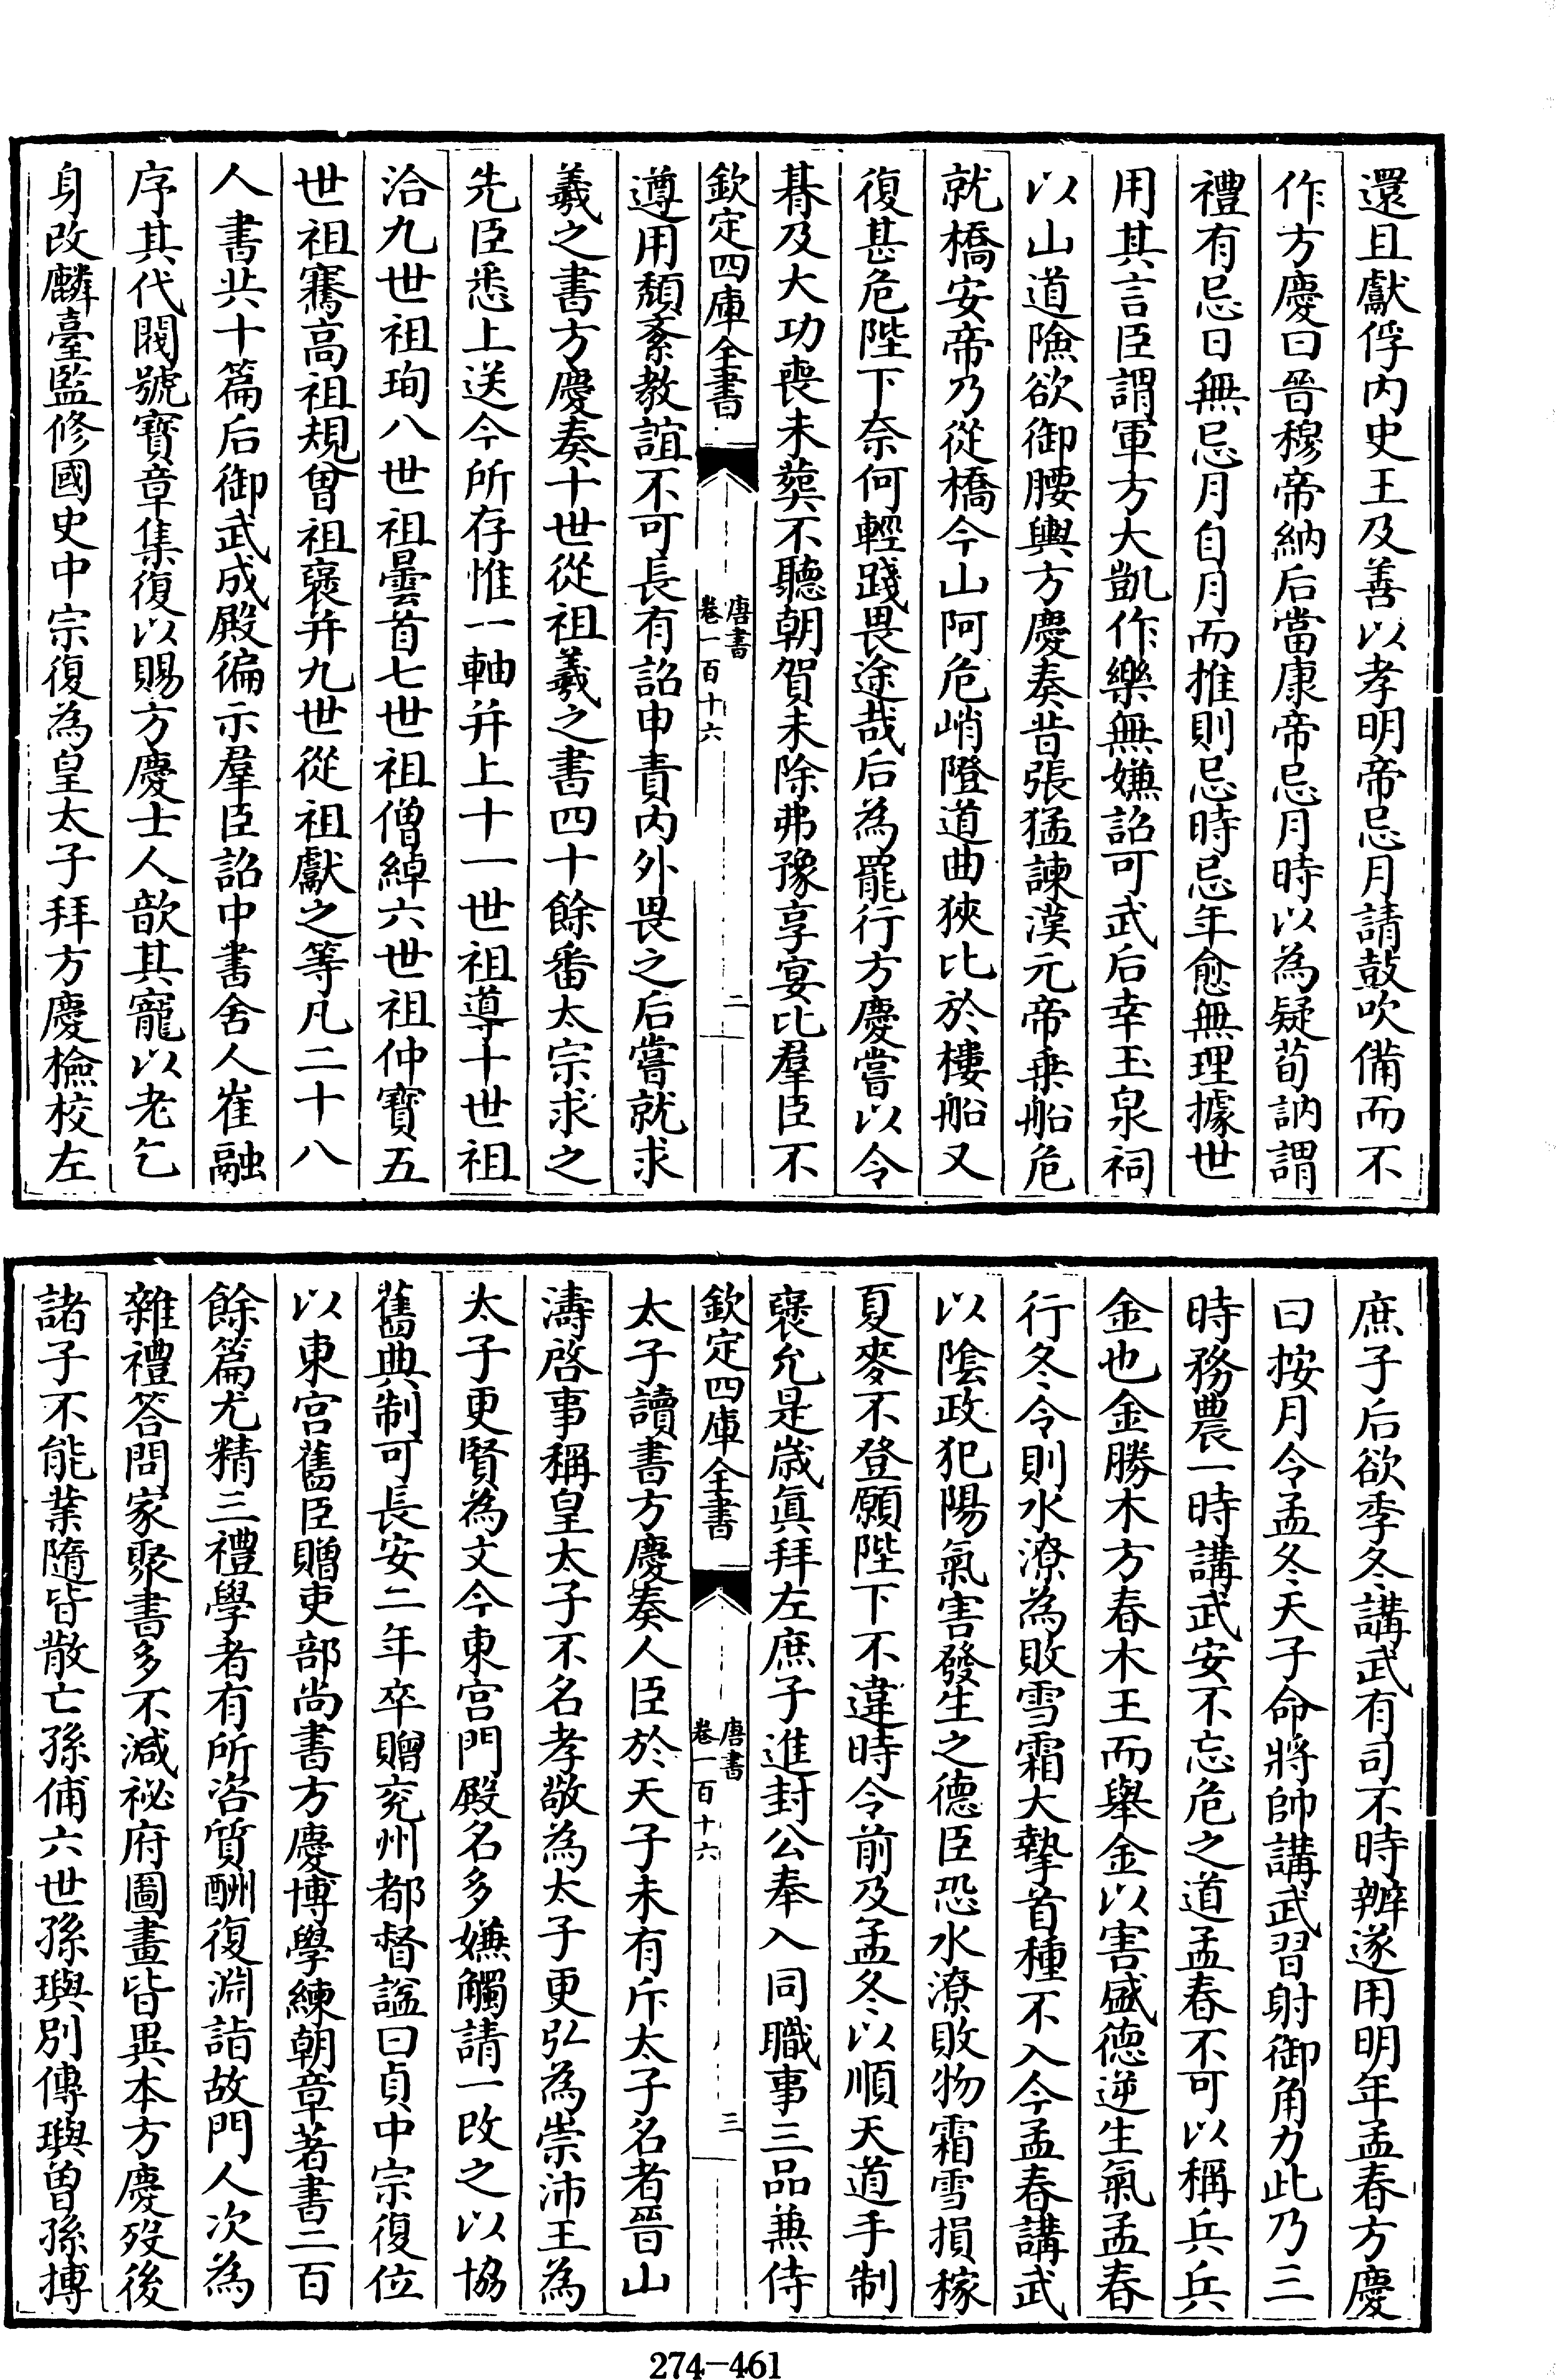 還且獻俘内史王及善以孝明帝忌月請鼓吹備而不
作方慶曰晉穆帝納后當康帝忌月時以為疑荀訥謂
禮有忌日無忌月自月而推則忌時忌年愈無理據世
用其言臣謂軍方大凱作樂無嫌詔可武后幸玉泉祠
以山道險欲御腰輿方慶奏昔張猛諫漢元帝乗船危
就橋安帝乃從橋今山阿危峭隥道曲狹比於樓船又
復甚危陛下奈何輕踐畏途哉后為罷行方慶嘗以令
朞及大功喪未葬不聽朝賀未除弗豫享宴比羣臣不
欽定四庫全書
唐書
卷一百十六
二
遵用頹紊教誼不可長有詔申責内外畏之后嘗就求
羲之書方慶奏十世從祖羲之書四十餘番太宗求之
先臣悉上送今所存惟一軸并上十一世祖導十世祖
洽九世祖珣八世祖曇首七世祖僧綽六世祖仲寶五
世祖騫高祖規曾祖褒并九世從祖獻之等凡二十八
人書共十篇后御武成殿徧示羣臣詔中書舍人崔融
序其代閥號寶章集復以賜方慶士人歆其寵以老乞
身改麟臺監修國史中宗復為皇太子拜方慶檢校左
庶子后欲季冬講武有司不時辦遂用明年孟春方慶
曰按月令孟冬天子命將帥講武習射御角力此乃三
時務農一時講武安不忘危之道孟春不可以稱兵兵
金也金勝木方春木王而舉金以害盛德逆生氣孟春
行冬令則水潦為敗雪霜大摯首種不入今孟春講武
以陰政犯陽氣害發生之德臣恐水潦敗物霜雪損稼
夏麥不登願陛下不違時令前及孟冬以順天道手制
褒允是歳真拜左庶子進封公奉入同職事三品兼侍
欽定四庫全書
唐書
卷一百十六
三
太子讀書方慶奏人臣於天子未有斥太子名者晉山
濤啓事稱皇太子不名孝敬為太子更弘為崇沛王為
太子更賢為文今東宫門殿名多嫌觸請一改之以協
舊典制可長安二年卒贈兖州都督諡曰貞中宗復位
以東宫舊臣贈吏部尚書方慶博學練朝章著書二百
餘篇尤精三禮學者有所咨質酬復淵詣故門人次為
雜禮答問家聚書多不減祕府圖畫皆異本方慶歿後
諸子不能業隨皆散亡孫俌六世孫璵别傳璵曾孫摶
274-461